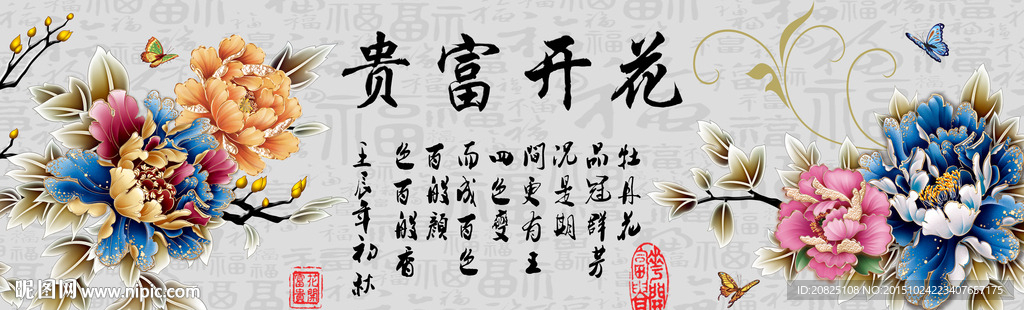 花开富贵
牡丹花
品冠群芳
况是期
间更有王
四色变
而成百色
百般颜
色百般香
壬辰年初秋
花開
富貴
昵图网 www.nipic.com
ID:20825108 NO:20151024223407687175